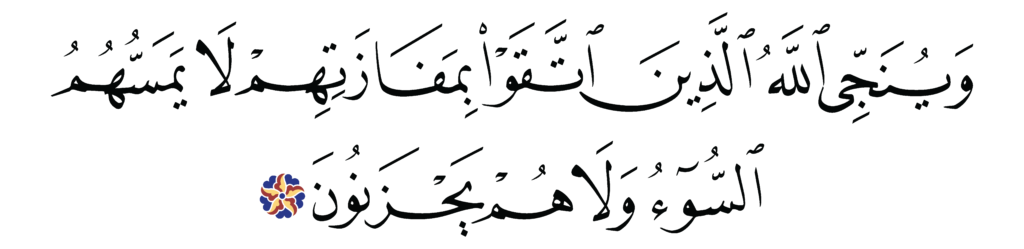 وَيُنَجِّى ٱللَّهُ ٱلَّذِينَ ٱتَّقَوْا۟ بِمَفَازَتِهِمْ لَا يَمَسُّهُمُ
ٱلسُّوٓءُ وَلَا هُمْ يَحْزَنُونَ